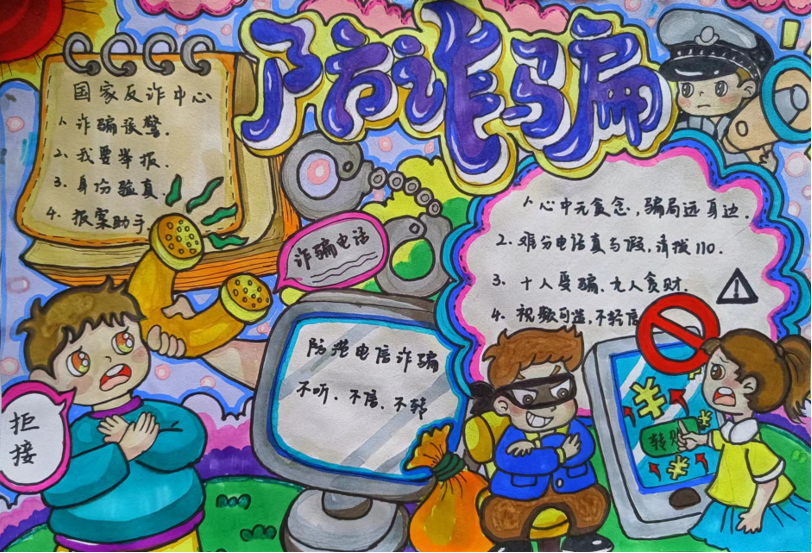 防诈骗
国家反诈中心
1. 诈骗预警.
2. 我要举报.
3. 身份验真.
4. 报案助手
诈骗电话
1. 心中无贪念，骗局远身边.
2. 难分电话真与假，请拨110.
3. 十人受骗、九人贪财.
4. 视频可造，不轻信
防范电信诈骗
不听、不信、不转
拒
接
转账